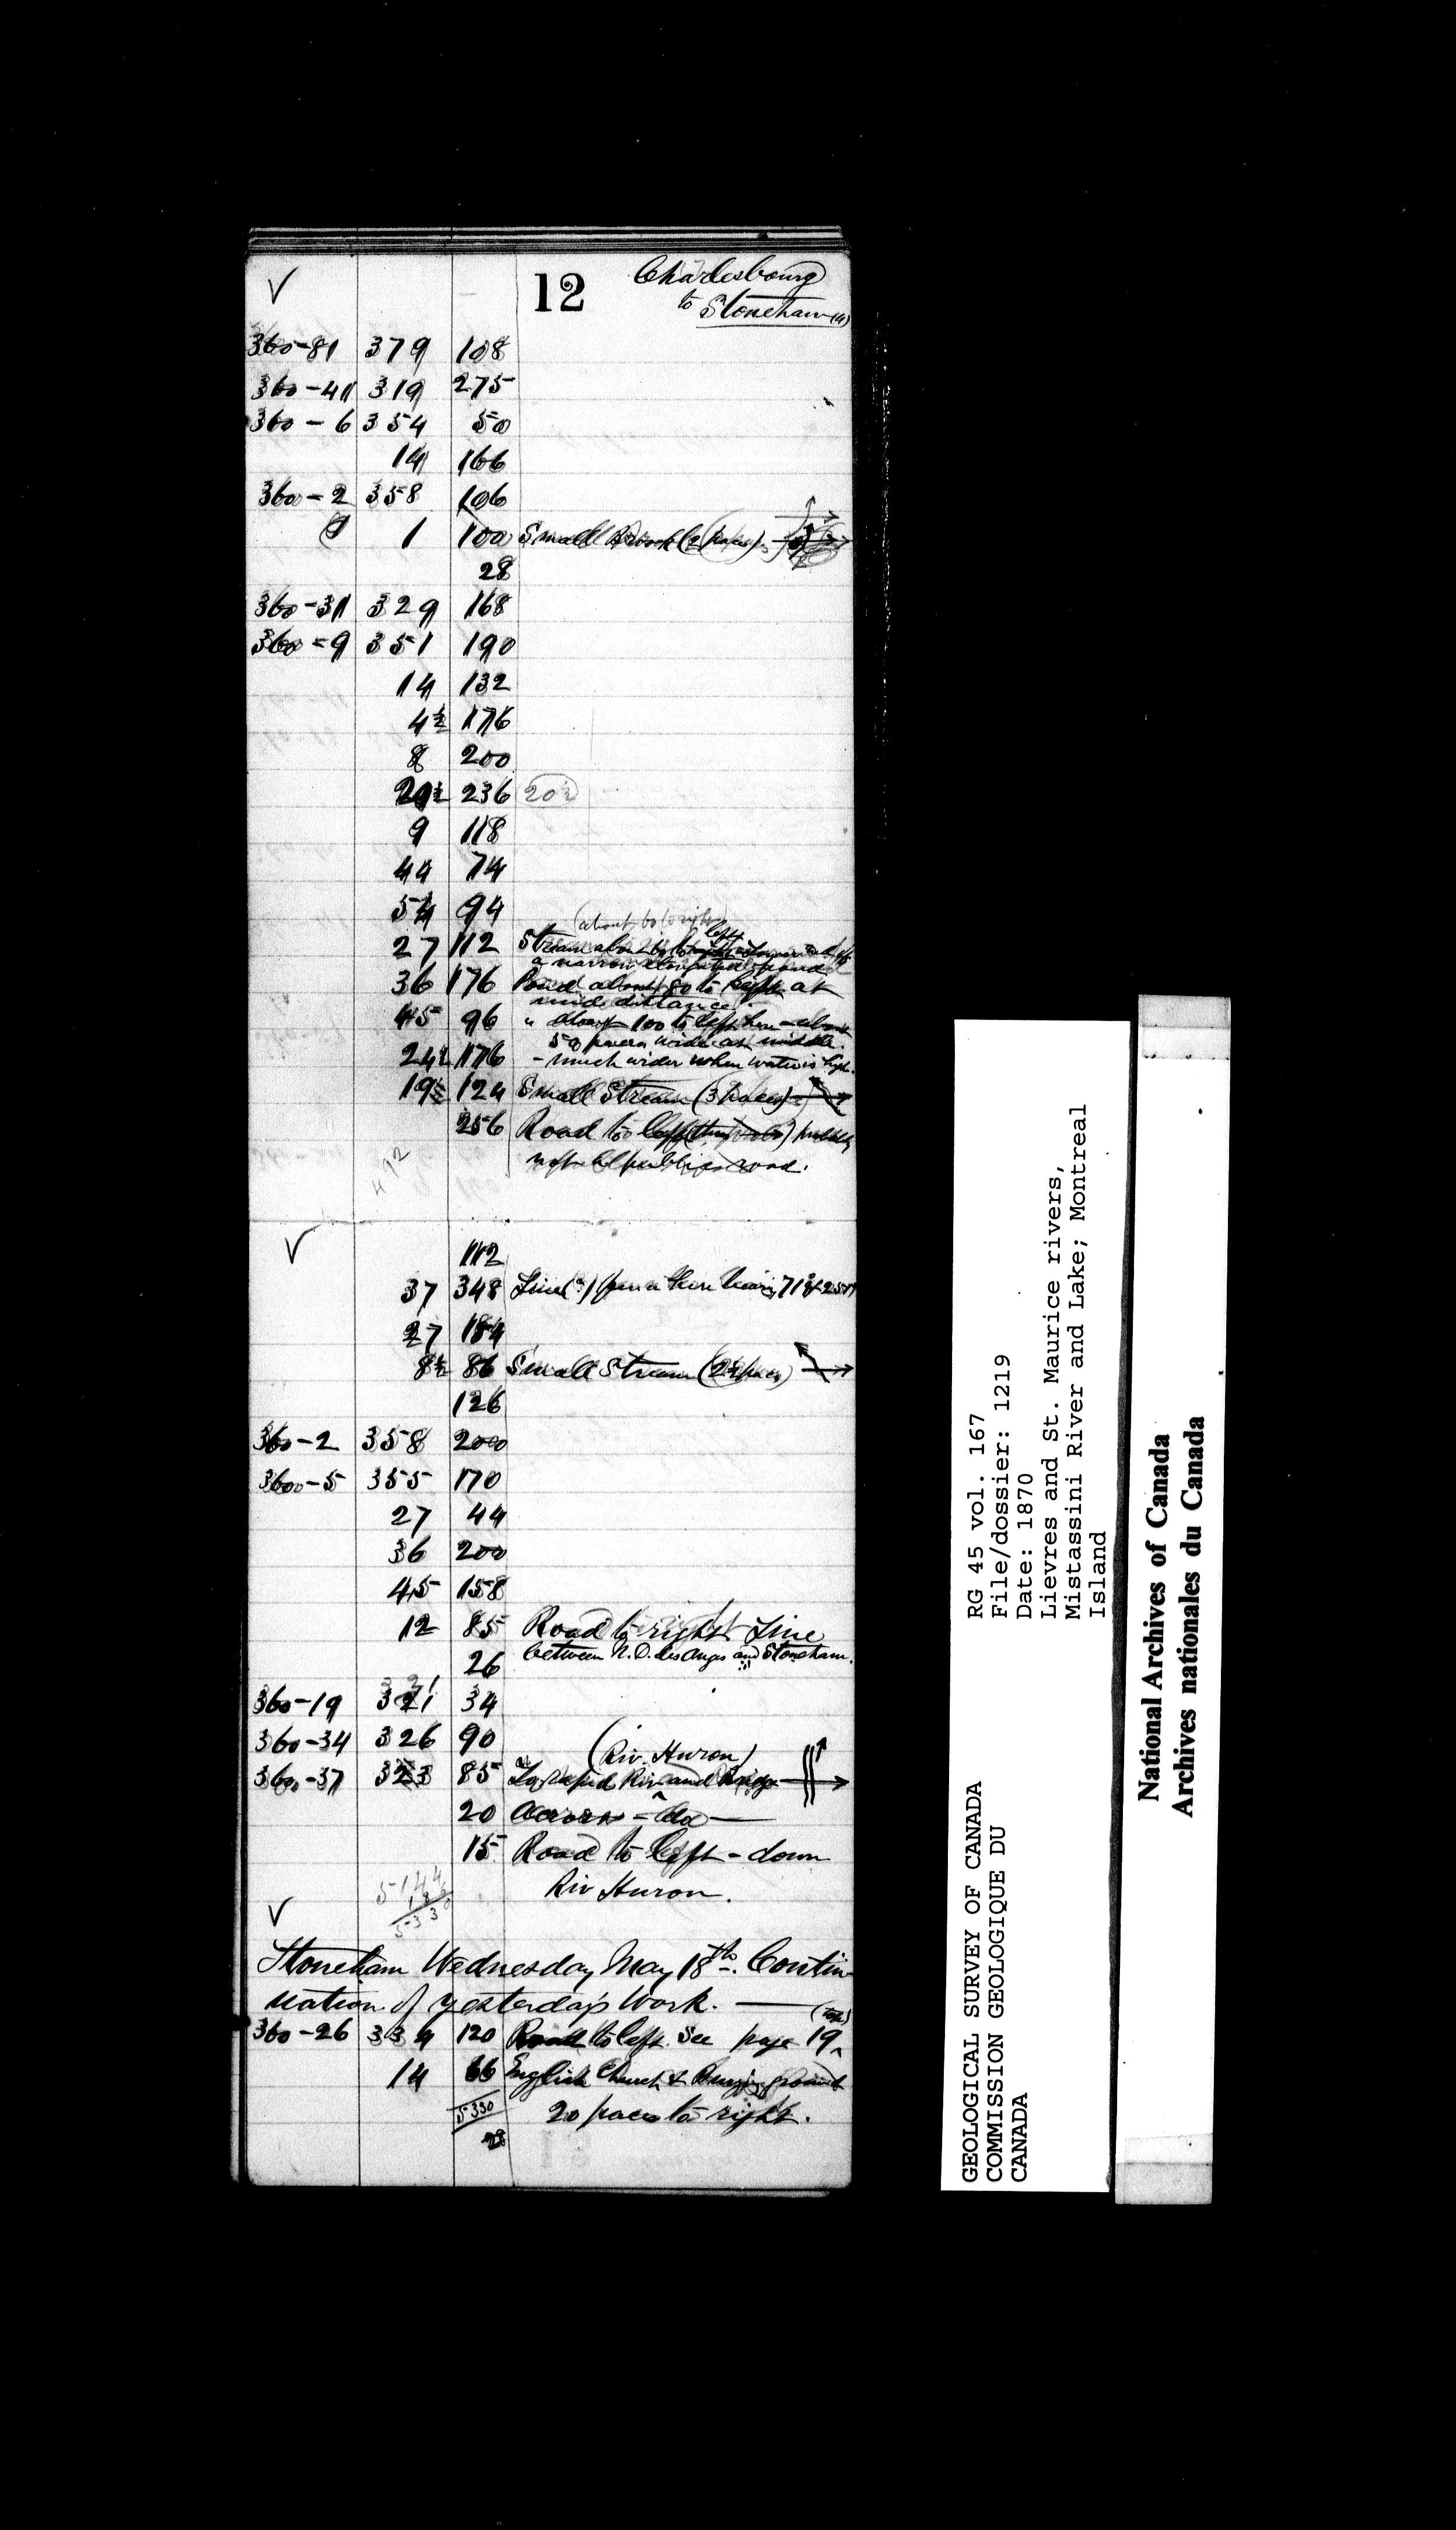 12 Charlesbourg
to Stoneham (a)
360-81 379 108
360-41 319 275
360-6 354 50
14 166
360-2 358 106
1 100 Small Brook (2 paces)
28
360-31 329 168
360-9 351 190
14 132
4½ 176
8 200
20½ 236 20½
9 118
44 74
54 94
(about 60 to right)
27 112 Stream about left
a narrow elongated pond
36 176 Pond about 80 to right at
mid distance.
45 96 " about 100 to left here - about
50 paces wide at middle.
24½ 176 - much wider when water is high.
19½ 124 Small Stream (3 paces)
256 Road to left probably
not a public road.
492
112
37 348 Line (?) fence here bearing 71 & 251
27 184
8½ 86 Small Stream (2½ paces)
126
360-2 358 200
360-5 355 170
27 44
36 200
45 158
12 85 Road to right. Line
26 between N.D. des Anges and Stoneham.
360-19 321 34
360-34 326 90
(Riv. Huron)
360-37 323 85 To rapid Riv. and Bridge
20 Across - do -
15 Road to left - down
Riv Huron.
5144
186
5330
Stoneham Wednesday May 18th. Contin-
uation of yesterday's Work.
(top)
360-26 334 120 Road to left. See page 19
14 66 English Church & Burying ground
5330 20 paces to right.
28
RG 45 vol. 167
File/dossier: 1219
Date: 1870
Lievres and St. Maurice rivers,
Mistassini River and Lake; Montreal
Island
GEOLOGICAL SURVEY OF CANADA
COMMISSION GEOLOGIQUE DU
CANADA
National Archives of Canada
Archives nationales du Canada